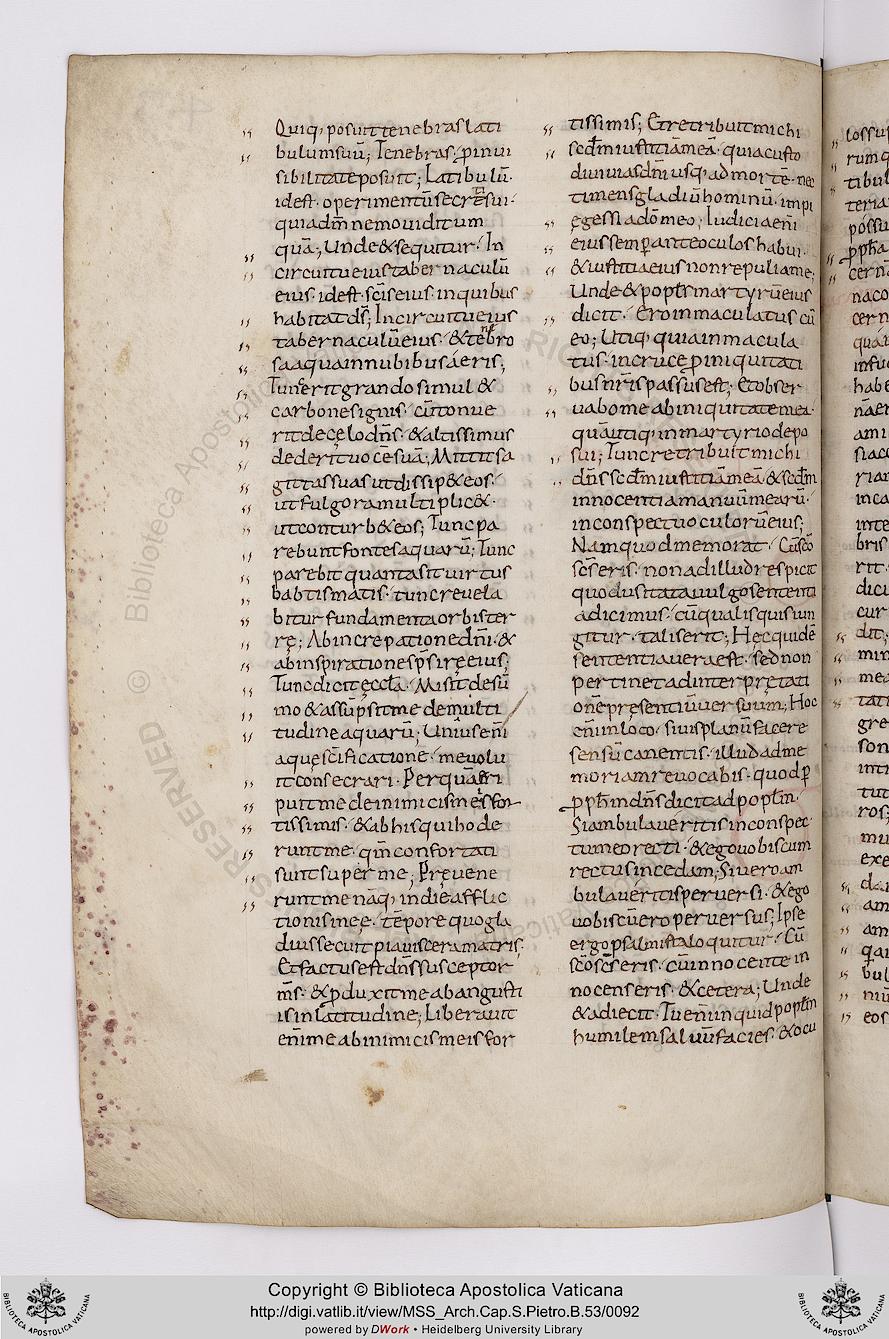 Quiq; posuit tenebras lati
bulum suū; Tenebras, pinui
sibilitatē posuit; Latibulū
idest operimentū secręsui
quiadm̄ nemo uiditum
quā; Unde & sequitur In
circuitu eius tabernaculū
eius idest sc̄is eius inquibus
habitat ds̄; In circuitu eius
tabernaculū eius & tenebro
sa aqua in nubibus aeris;
Tunc erit grando simul &
carbones ignis cū tonue
rit de cęlo dn̄s & altissimus
dederit uocē suā; Mittit sa
gittas suas ut dissip& eos
ut fulgora multiplic&
ut conturb& eos; Tunc pa
rebunt fontes aquarū; Tunc
parebit quanta sit uirtus
babtismatis tunc reuela
bitur fundamenta orbis ter
rę; Ab increpatione dn̄i &
ab inspiratione sp̄s irę eius;
Tunc dicit ęccl̄a Misit desū
mo & assūpsit me de multi
tudine aquarū; Uniuseni
aquę sc̄ificatione me uolu
it consecrari Per quā eri
puit me de inimicis meis for
tissimis & ab his qui hode
runt me qm̄ confortati
sunt super me; Pręuene
runt me nāq; in die afflic
tionis meę tēpore quo gla
dius secuit pia uiscera matris
Et factus est dn̄s susceptor
m̄s & ꝓduxit me ab angusti
is in latitudine; Liberauit
enī me ab inimicis meis for
tissimis; Et retribuit michi
scdm̄ iustitiā meā quia custo
diui uias dn̄i usq; ad mortē nec
timens gladiū hominū impi
ę gessi a dō meo; Iudicia eni
eius semꝑ ante oculos habui
& iustitia eius non repuli a me;
Unde & popl̄s martyrū eius
dicit Ero inmaculatus cū
eo; Utiq; quia inmacula
tus in cruce ꝓ iniquitati
bus nr̄is passus est; Et obser
uabo me ab iniquitate mea
quā utiq; in martyrio depo
sui; Tunc retribuit michi
dn̄s scdm̄ iustitiā meā & scdm̄
innocentia manuū mearū
in conspectu oculorū eius;
Nam quod memorat Cū sc̄o
sc̄s eris non ad illud respicit
quod usitata uulgo sententi
a dicimus cū qualis quis iun
gitur talis erit; Hęc quidē
sententia uera est sed non
pertinet ad interpretati
onē pręsenti ūuersuum; Hoc
enī in loco si uis planū facere
sensū canentis illud ad me
moriam reuocabis quod ꝑ
ꝓph̄m dn̄s dicit ad popl̄m
Si ambulaueritis in conspec
tu meo recti & ego uobiscum
rectus incedam; Si uero am
bulaueritis peruersi & ego
uobiscū uero peruersus; Ipse
ergo psalmista loquitur Cū
sc̄o sc̄s eris cū innocente in
nocens eris & cetera; Unde
& adiecit Tu enī inquid popl̄m
humilem saluū facies & ocu